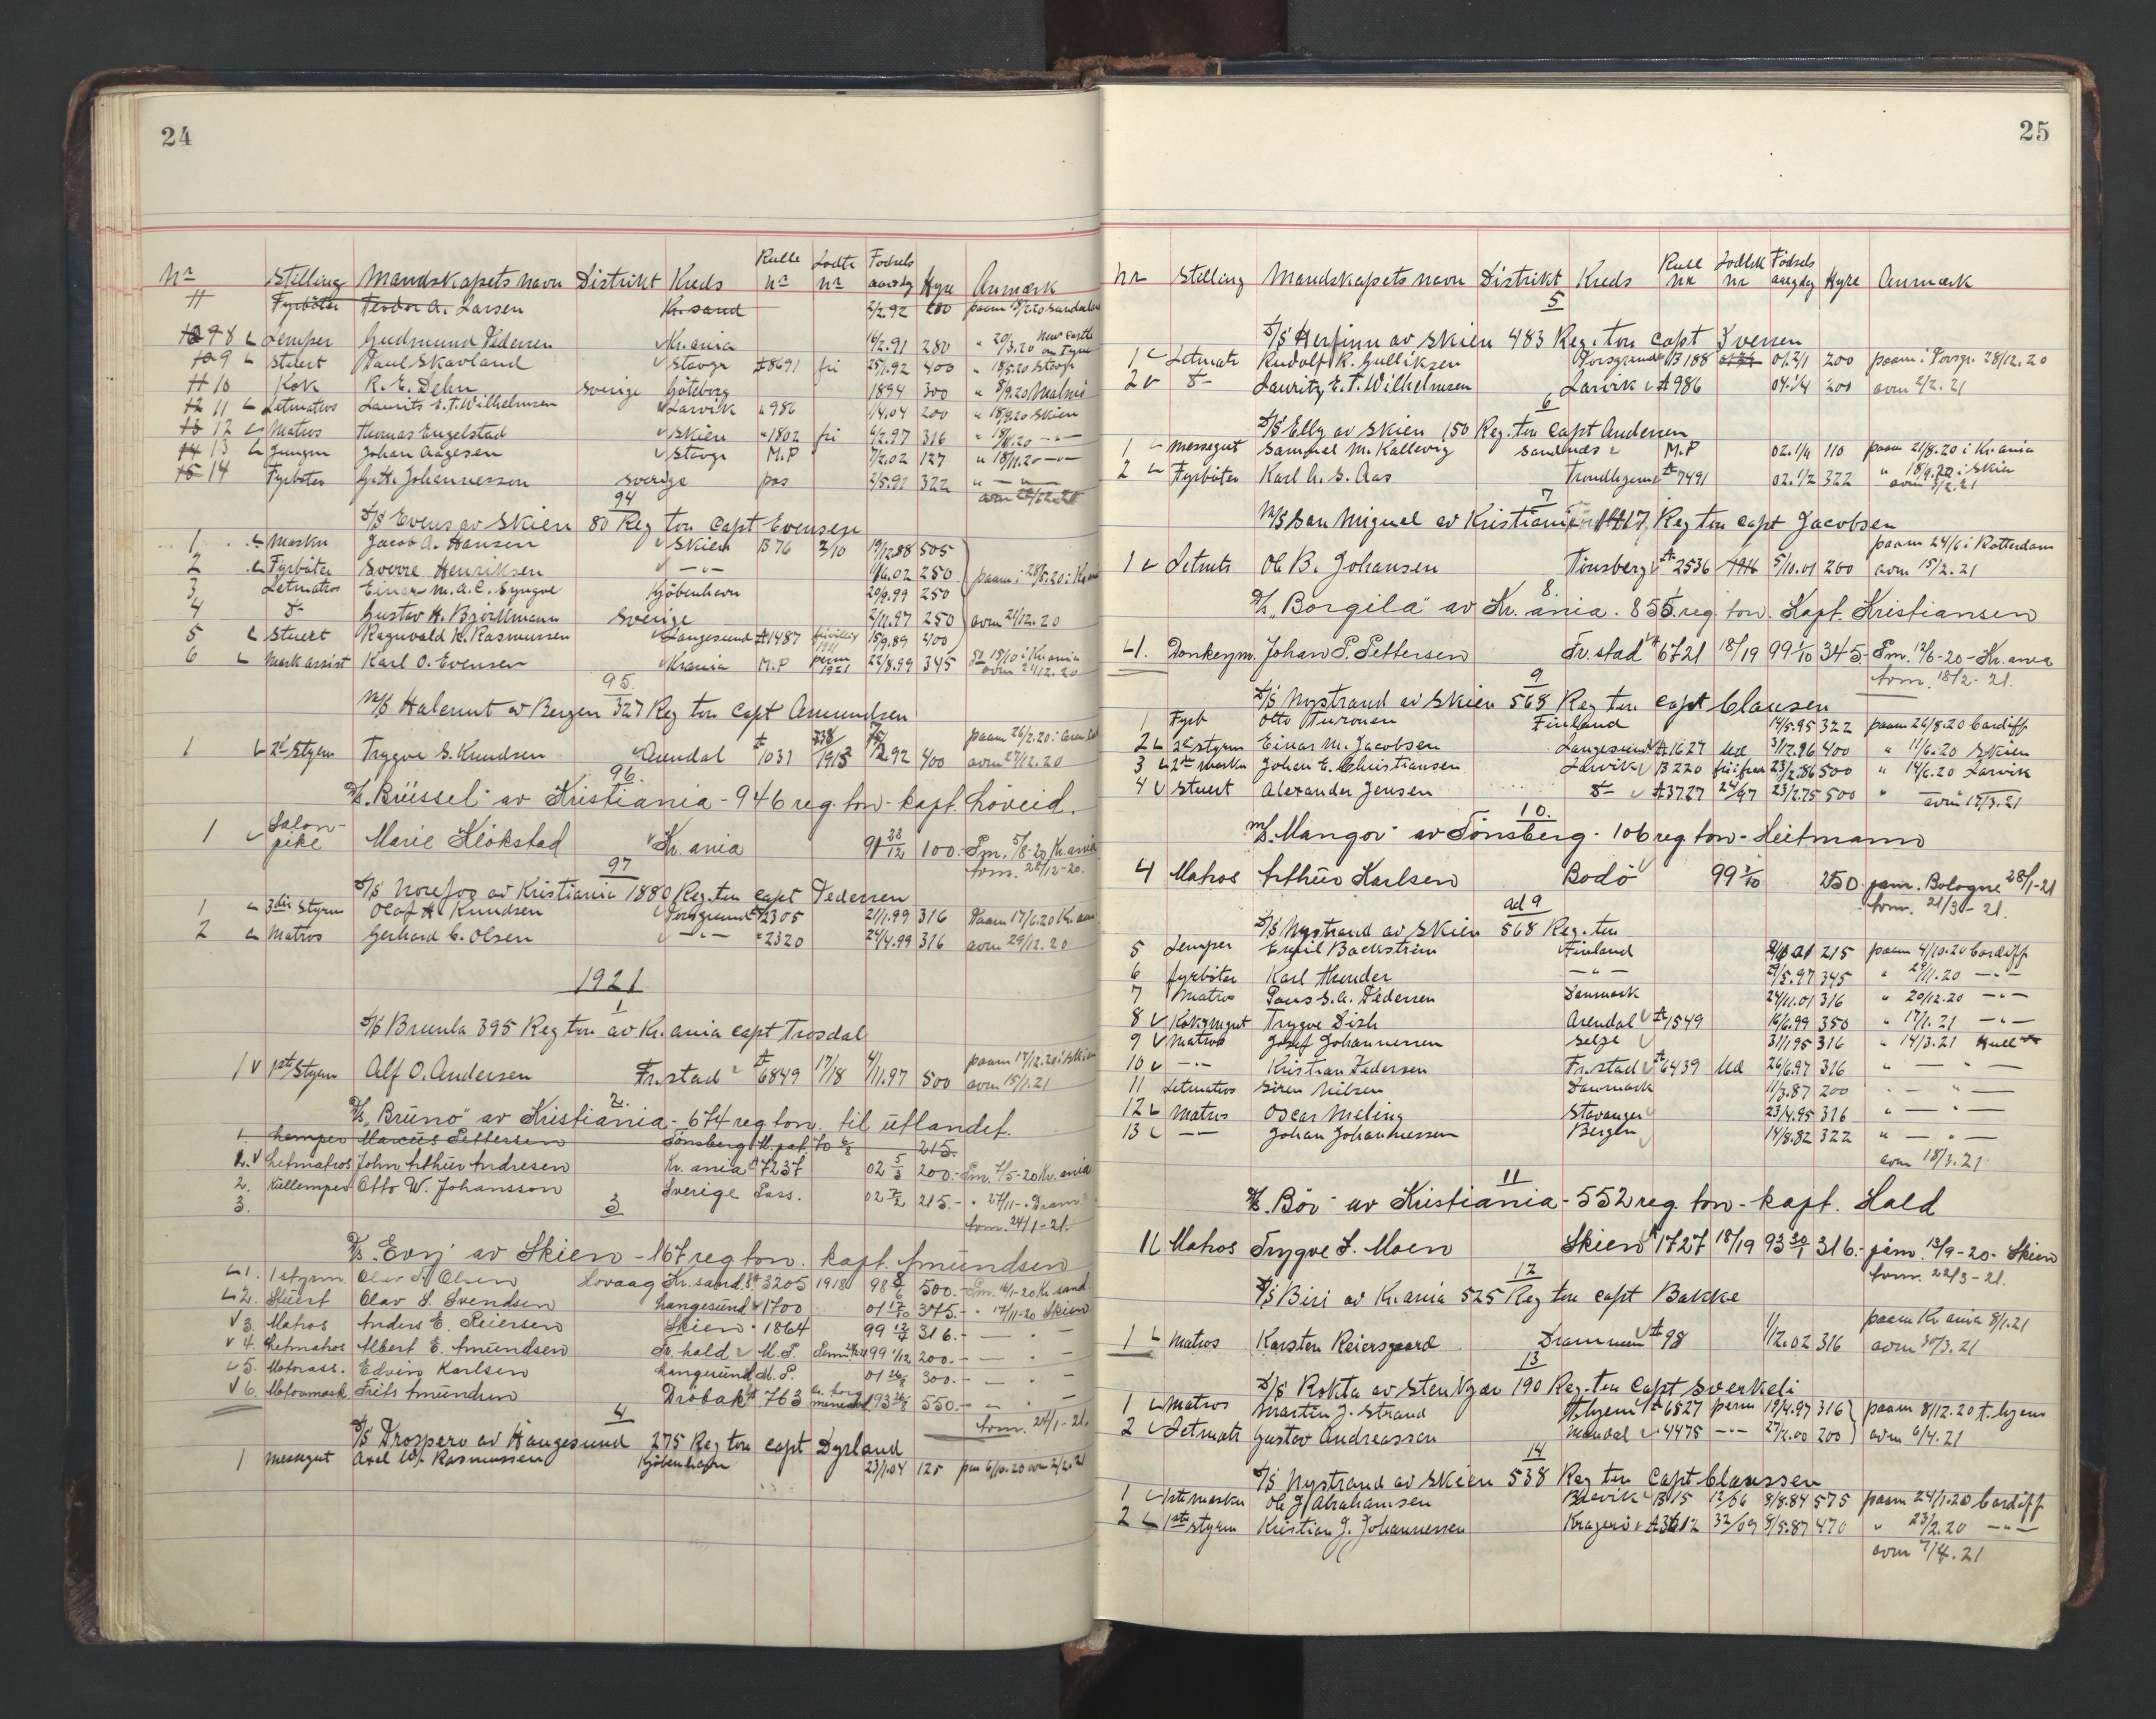 24
Nr Stilling Mandskapets navn Distrikt Kreds Rulle nr Lodtr nr Fødsels aar dag Hyre Anmærk
11 Fyrbøter Teodor A. Larsen Kr.sand 2/2.92 280
10 9 8 Lemper Gudmund Pedersen Kr.ania 14/2.91 280 " 20/3.20 Newcastle on Tyne
10 9 Stuert Paul Skavland Stavgr A 8691 fri 25/1.92 400 " 18/5.20 Stavgr
11 10 Kok R. E. Dehn Sverige Göteborg 1894 300 " 8/9.20 Malmö
12 11 Letmatros Laurits E.T. Wilhelmsen Larvik " 986 1/4.04 200 " 18/9.20 Skien
13 12 Matros Thomas Engelstad Skien " 1802 fri 6/2.97 316
14 13 Jungm Johan Aagesen Stavgr M.P 7/2.02 127 " 18/11.20 — " —
15 14 Fyrbøter G. H. Johannesson Sverige pas 2/5.91 322 " — " —
94
S/S Evens av Skien 80 Reg ton Capt Evensen
1 Maskn Jacob A. Hansen Skien B 76 2/10 19/12.88 505
2 Fyrbøter Sverre Henriksen — " — 11/6.02 250 paam i 28/5.20 i Kr.ania
3 Letmatros Einar M. A. C. Syngve Kjøbenhavn 20/9.99 250
4 Do Gustav H. Björllmann Sverige 2/11.97 250 avm 21/12.20
5 Stuert Ragnvald K. Rasmussen Langesund A 1487 frivillig 15/9.89 400
6 Mask assist Karl O. Evensen Krania M.P perm 1921 22/8.99 345 15/10 i Kr.ania avm 21/12.20
95.
M/S Halvunt av Bergen 327 Reg ton Capt Amundsen
1 2d Styrm Trygve S. Knudsen Arendal A 1031 1913 2.92 400 paam 26/2.20 i Arendal
96.
D/S "Brüssel" av Kristiania - 946 reg. ton - kapt. Høveid.
1 Salon-pike Marie Klökstad Kr. ania 91 28/12 100.- Pm. 5/8-20 Kr.ania
97
S/S Norefos av Kristiania 1880 Reg. ton Capt Pedersen
1 3die Styrm Olaf A. Knudsen Porsgrund A 2305 21/1.99 316 Paam 17/6.20 Kr.ania
2 Matros Gerhard C. Olsen — " — " 2320 24/4.99 316 avm 29/12.20
1921
1
S/S Brunla 395 Reg ton av Kr. ania capt Trosdal
1 1ste Styrm Alf O. Andersen Fr.stad A 6849 17/18 4/11.97 500 paam 17/12.20 i Skien
avm 15/1.21
2.
D/S "Brüno" av Kristiania - 674 reg ton. til utlandet.
1. Lemper Marcüs Pettersen Tønsberg M.pat. 215.
1. Letmatros John Arthür Andresen Kr. ania A 7237 02 5/3 200.- Pm. 7/5-20 Kr. ania
2. Küllemper Otto W. Johansson Sverige Pass. 02 7/2 215.- " 27/11 - Dram.
3. 3 avm. 24/1-21.
D/S "Evy" av Skien - 167 reg ton. kapt. Amündsen
1. 1 styrm. Olav S. Olsen Hovaag Kr.sand.S. A 3205 1918 98 8/6 500.-
2. Stüert Olav S. Svendsen Langesünd 1700 01 17/10 375.- " 17/11-20 Skien
3. Matros Anders E. Peiersen Skien " 1864 99 12/7 316.- — " —
4. Letmatros Albert E. Amündsen Fr.hald M.P. 99 1/12 200.- — " —
5. Motorass. Edvin Karlsen Langesünd M.P. 01 26/8 300.- — " —
6. Motormask. Frits Amündsen Drøbak 763 93 26/8 550.- — " —
avm. 24/1-21.
4
S/S Prospero av Haugesund 275 Reg ton Capt Dyrland
1 Messegut Axel W. Rasmussen Kjøbenhavn 23/1.04 125
25
Nr Stilling Mandskapets navn Distrikt Kreds Rull nr Lodtk nr Fødsels aar og dag Hyre Anmærk
5
S/S Herfinn av Skien 483 Reg. ton Capt Iversen
1 Letmatr Rudolf R. Gulliksen Porsgrund B 188 01.2/1 200 paam i Porsgr. 28/12.20
2 Do Lauritz E. T. Wilhelmsen Larvik A 986 04.1/4 200 avm 2/2.21
6
S/S Elly av Skien 150 Reg. ton Capt Andersen
1 Messegut Sammel M. Kallevig Sandnæs M.P 02.1/4 110 paam 21/8.20 i Kr.ania
2 Fyrbøter Karl A. S. Aas Trondhjem A 7491 02.1/2 322 " 18/9.20 i Skien
7
M/S San Miguel av Kristiania 1117 Reg ton Capt Jacobsen
paam 24/6 i Rotterdam
1 Letmatr Ole B. Johansen Tønsberg A 2536 5/10.01 200 avm 15/2.21
8.
D/S "Borgila" av Kr. ania. 855 reg. ton. Kapt. Kristiansen
1. Donkeym. Johan P. Pettersen Fr.stad A 6721 18/19 99 1/10 345.- Pm. 12/6-20 - Kr. ania
avm. 18/2-21.
9
S/S Nystrand av Skien 568 Reg ton Capt Clausen
1 Fyrb Otto Turonen Finland 14/5.95 322 paam 26/8.20 Cardiff
2 2d styrm Einar M. Jacobsen Langesund A 1627 Ud 3/12.96 400 " 11/6.20 Skien
3 2den maskn Johan E. Christiansen Larvik B 220 23/2.86 500 " 14/6.20 Larvik
4 Stuert Alexander Jensen Do A 3727 24/97 23/2.75 500
avm 17/3.21
10.
M/S "Mangor" av Tønsberg - 106 reg ton - Heitmann
4 Matros Arthür Karlsen Bodø 99 3/10 250. paam. Bologne 28/1-21
avm. 21/3-21.
ad 9
S/S Nystrand av Skien 568 Reg. ton
5 Lemper Emil Backström Finland 215 paam 4/10.20 Cardiff
6 fyrbøter Karl Hunder — " — 29/5.97 345 " 29/11.20 — " —
7 Matros Paus S. A. Pedersen Danmark 24/11.01 316 " 20/12.20 — " —
8 Kok & mgut Trygve Dish Arendal A 1549 16/6.99 350 " 17/1.21 — " —
9 Matros Josef Johannessen Selje 31/1.95 316 " 14/3.21 Hull
10 — " — Kristian Pedersen Fr.stad A 6439 Ud 26/6.97 316 " — " —
11 Letmatros Siren Nilsen Danmark 11/3.87 200 " — " —
12 Matros Oscar Meling Stavanger 23/4.95 316 " — " —
13 — " — Johan Johannessen Bergen 14/8.82 322 " — " —
avm 18/3.21
11
D/S "Bör" av Kristiania - 552 reg. ton - kapt. Hald
11 Matros Trygve F. Moen Skien A 1727 18/19 93 30/1 316.- påm. 13/9-20 - Skien
avm. 22/3-21.
12
S/S Biri av Kr.ania 525 Reg ton Capt Bakke
paam Kr ania 8/1.21
1 Matros Karsten Reiersgaard Drammen A 98 1/12.02 316 avm 30/3.21
13
S/S Rokta av Stenkjær 190 Reg. ton Capt Sverkeli
1 Matros Martin J. Strand T.hjem A 6827 perm 19/4.97 316 paam 8/12.20 T.hjem
2 Letmatr Gustav Andreassen Mandal " 4475 — " — 27/2.00 200 avm 6/4.21
14
S/S Nystrand av Skien 538 Reg ton Capt Claussen
1 1ste Maskn Ole J. Abrahamsen Brevik B 15 12/06 8/8.84 575 paam 24/1.20 Cardiff
2 1ste styrm Kristian J. Johannessen Kragerø A 3612 32/09 8/5.87 470 " 23/2.20 — " —
avm 7/4.21